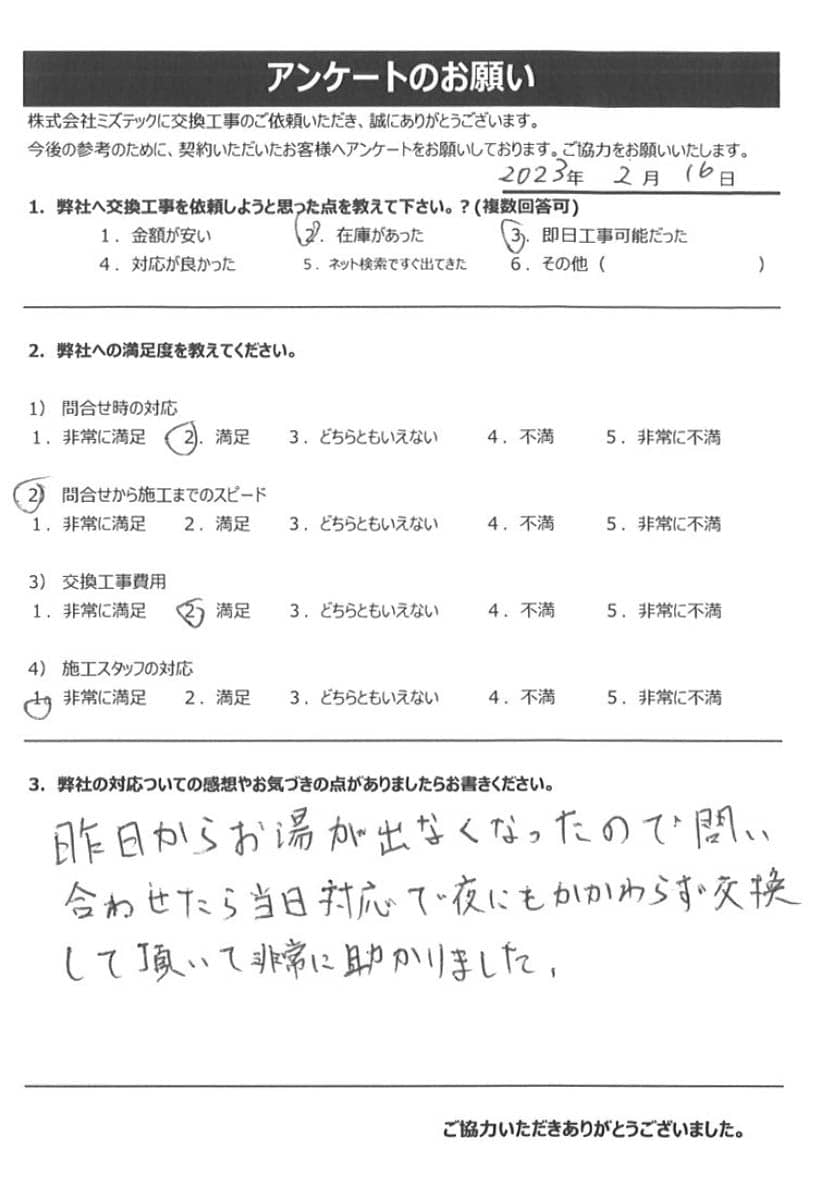 アンケートのお願い
株式会社ミズテックに交換工事のご依頼いただき、誠にありがとうございます。
今後の参考のために、契約いただいたお客様へアンケートをお願いしております。ご協力をお願いいたします。
2023年 2月 16日
1. 弊社へ交換工事を依頼しようと思った点を教えて下さい。?(複数回答可)
1. 金額が安い 2. 在庫があった 3. 即日工事可能だった
4. 対応が良かった 5. ネット検索ですぐ出てきた 6. その他 ( )
2. 弊社への満足度を教えてください。
1) 問合せ時の対応
1. 非常に満足 2. 満足 3. どちらともいえない 4. 不満 5. 非常に不満
2) 問合せから施工までのスピード
1. 非常に満足 2. 満足 3. どちらともいえない 4. 不満 5. 非常に不満
3) 交換工事費用
1. 非常に満足 2. 満足 3. どちらともいえない 4. 不満 5. 非常に不満
4) 施工スタッフの対応
1. 非常に満足 2. 満足 3. どちらともいえない 4. 不満 5. 非常に不満
3. 弊社の対応ついての感想やお気づきの点がありましたらお書きください。
昨日からお湯が出なくなったので問い
合わせたら当日対応で夜にもかかわらず交換
して頂いて非常に助かりました。
ご協力いただきありがとうございました。